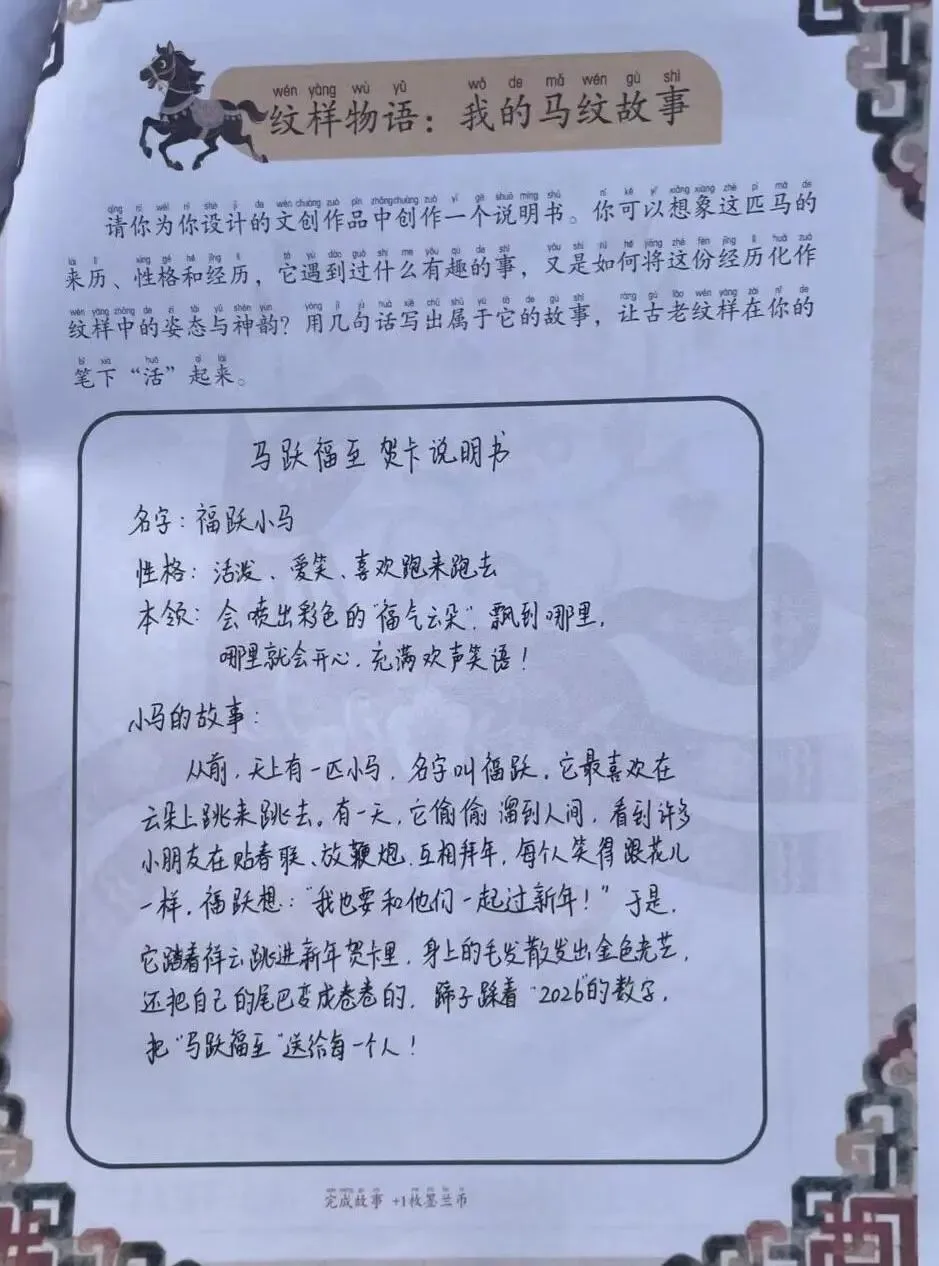 wén yàng wù yǔ wǒ de mǎ wén gù shi
纹样物语：我的马纹故事
qǐng nǐ wèi nǐ shè jì de wén chuàng zuò pǐn zhōng chuàng zuò yí gè shuō míng shū nǐ kě yǐ xiǎng xiàng zhè pǐ mǎ de
请你为你设计的文创作品中创作一个说明书。你可以想象这匹马的
lái lì xìng gé hé jīng lì tā yù dào guò shén me yǒu qù de shì yòu shì rú hé jiāng zhè fèn jīng lì huà zuò
来历、性格和经历，它遇到过什么有趣的事，又是如何将这份经历化作
wén yàng zhōng de zī tài yǔ shén yùn yòng jǐ jù huà xiě chū shǔ yú tā de gù shi ràng gǔ lǎo wén yàng zài nǐ de
纹样中的姿态与神韵？用几句话写出属于它的故事，让古老纹样在你的
bǐ xià huó qǐ lái
笔下“活”起来。
马跃福至 贺卡说明书
名字：福跃小马
性格：活泼、爱笑、喜欢跑来跑去
本领：会喷出彩色的“福气云朵”，飘到哪里，
哪里就会开心，充满欢声笑语！
小马的故事：
从前，天上有一匹小马，名字叫福跃，它最喜欢在
云朵上跳来跳去。有一天，它偷偷溜到人间，看到许多
小朋友在贴春联、放鞭炮，互相拜年，每个人笑得跟花儿
一样，福跃想：“我也要和他们一起过新年！”于是，
它踏着祥云跳进新年贺卡里，身上的毛发散发出金色光芒，
还把自己的尾巴变成卷卷的，蹄子踩着“2026”的数字，
把“马跃福至”送给每一个人！
完成故事 +1枚墨兰币